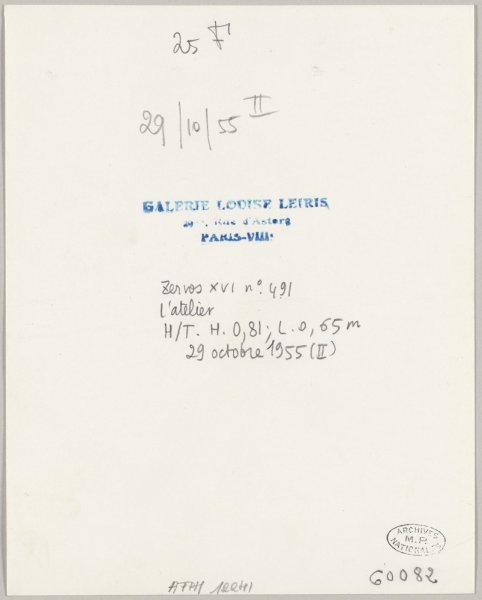 25 F
29/10/55 II
GALERIE LOUISE LEIRIS
29 bis, Rue d'Astorg
PARIS-VIIIe
Zervos XVI n° 491
l'atelier
H/T. H. 0,81; L. 0,65 m
29 octobre 1955 (II)
ARCHIVES
M.P.
NATIONALES
60082